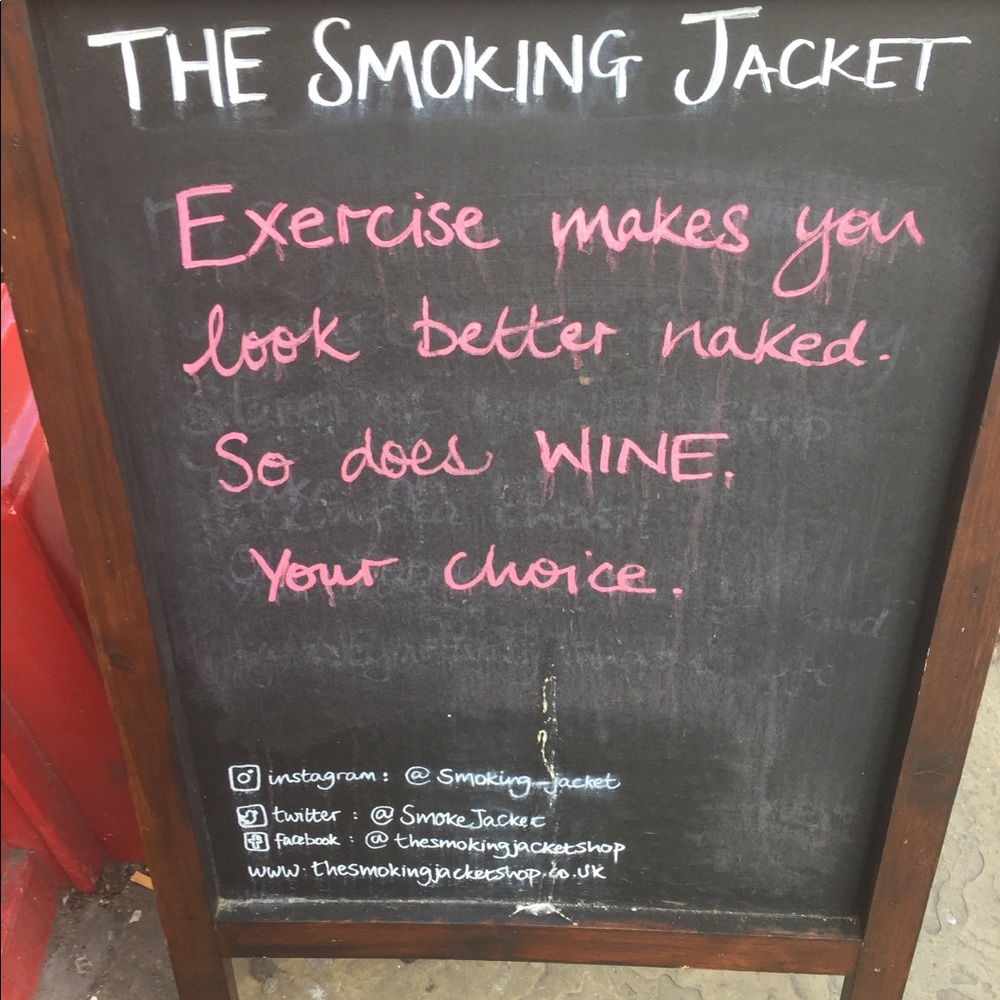 THE SMOKING JACKET
Exercise makes you
look better naked.
So does WINE.
Your choice.
instagram: @Smoking_jacket
twitter: @SmokeJacket
facebook: @thesmokingjacketshop
www.thesmokingjacketshop.co.uk